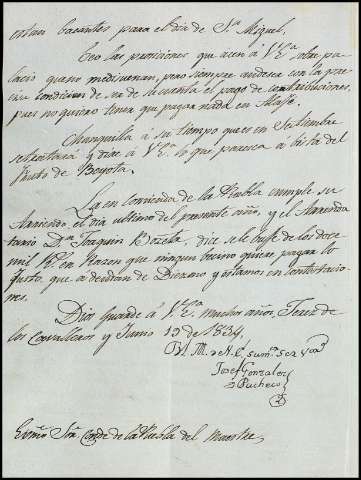 estan bacantes para el dia de Sn. Miguel.
Veo las provisiones que acen á V.E.a sobre pa-
lacio que no me disuenan, pero siempre an de ser con la pre-
cisa condicion de ser de su cuenta el pago de contribuciones
pues no quiero tener que pagar nada en Alafe.
Changuilla á su tiempo que es en Setiembre
se tratará y diré á V.E.a lo que paresca á bista del
fruto de Beyota.
La encomienda de la Puebla cumple su
Arriendo el dia ultimo del presente año, y el Arrenda
tario Dn. Joaquin Bozeta, dice se le baje de los doce
mil Rs. en Razon que ningun becino quiere pagar lo
justo, que adeudan de Diezmo y estamos en contestacio-
nes.
Dios Guarde á V.E.a muchos años, Jerez de
los Caballeros y Junio 19 de 1834.
B. L. M. de V. E. su mas. segr. Sor.
Josef Gonzalez
Pacheco
Exmo. Sor. Conde de la Puebla del Maestre,